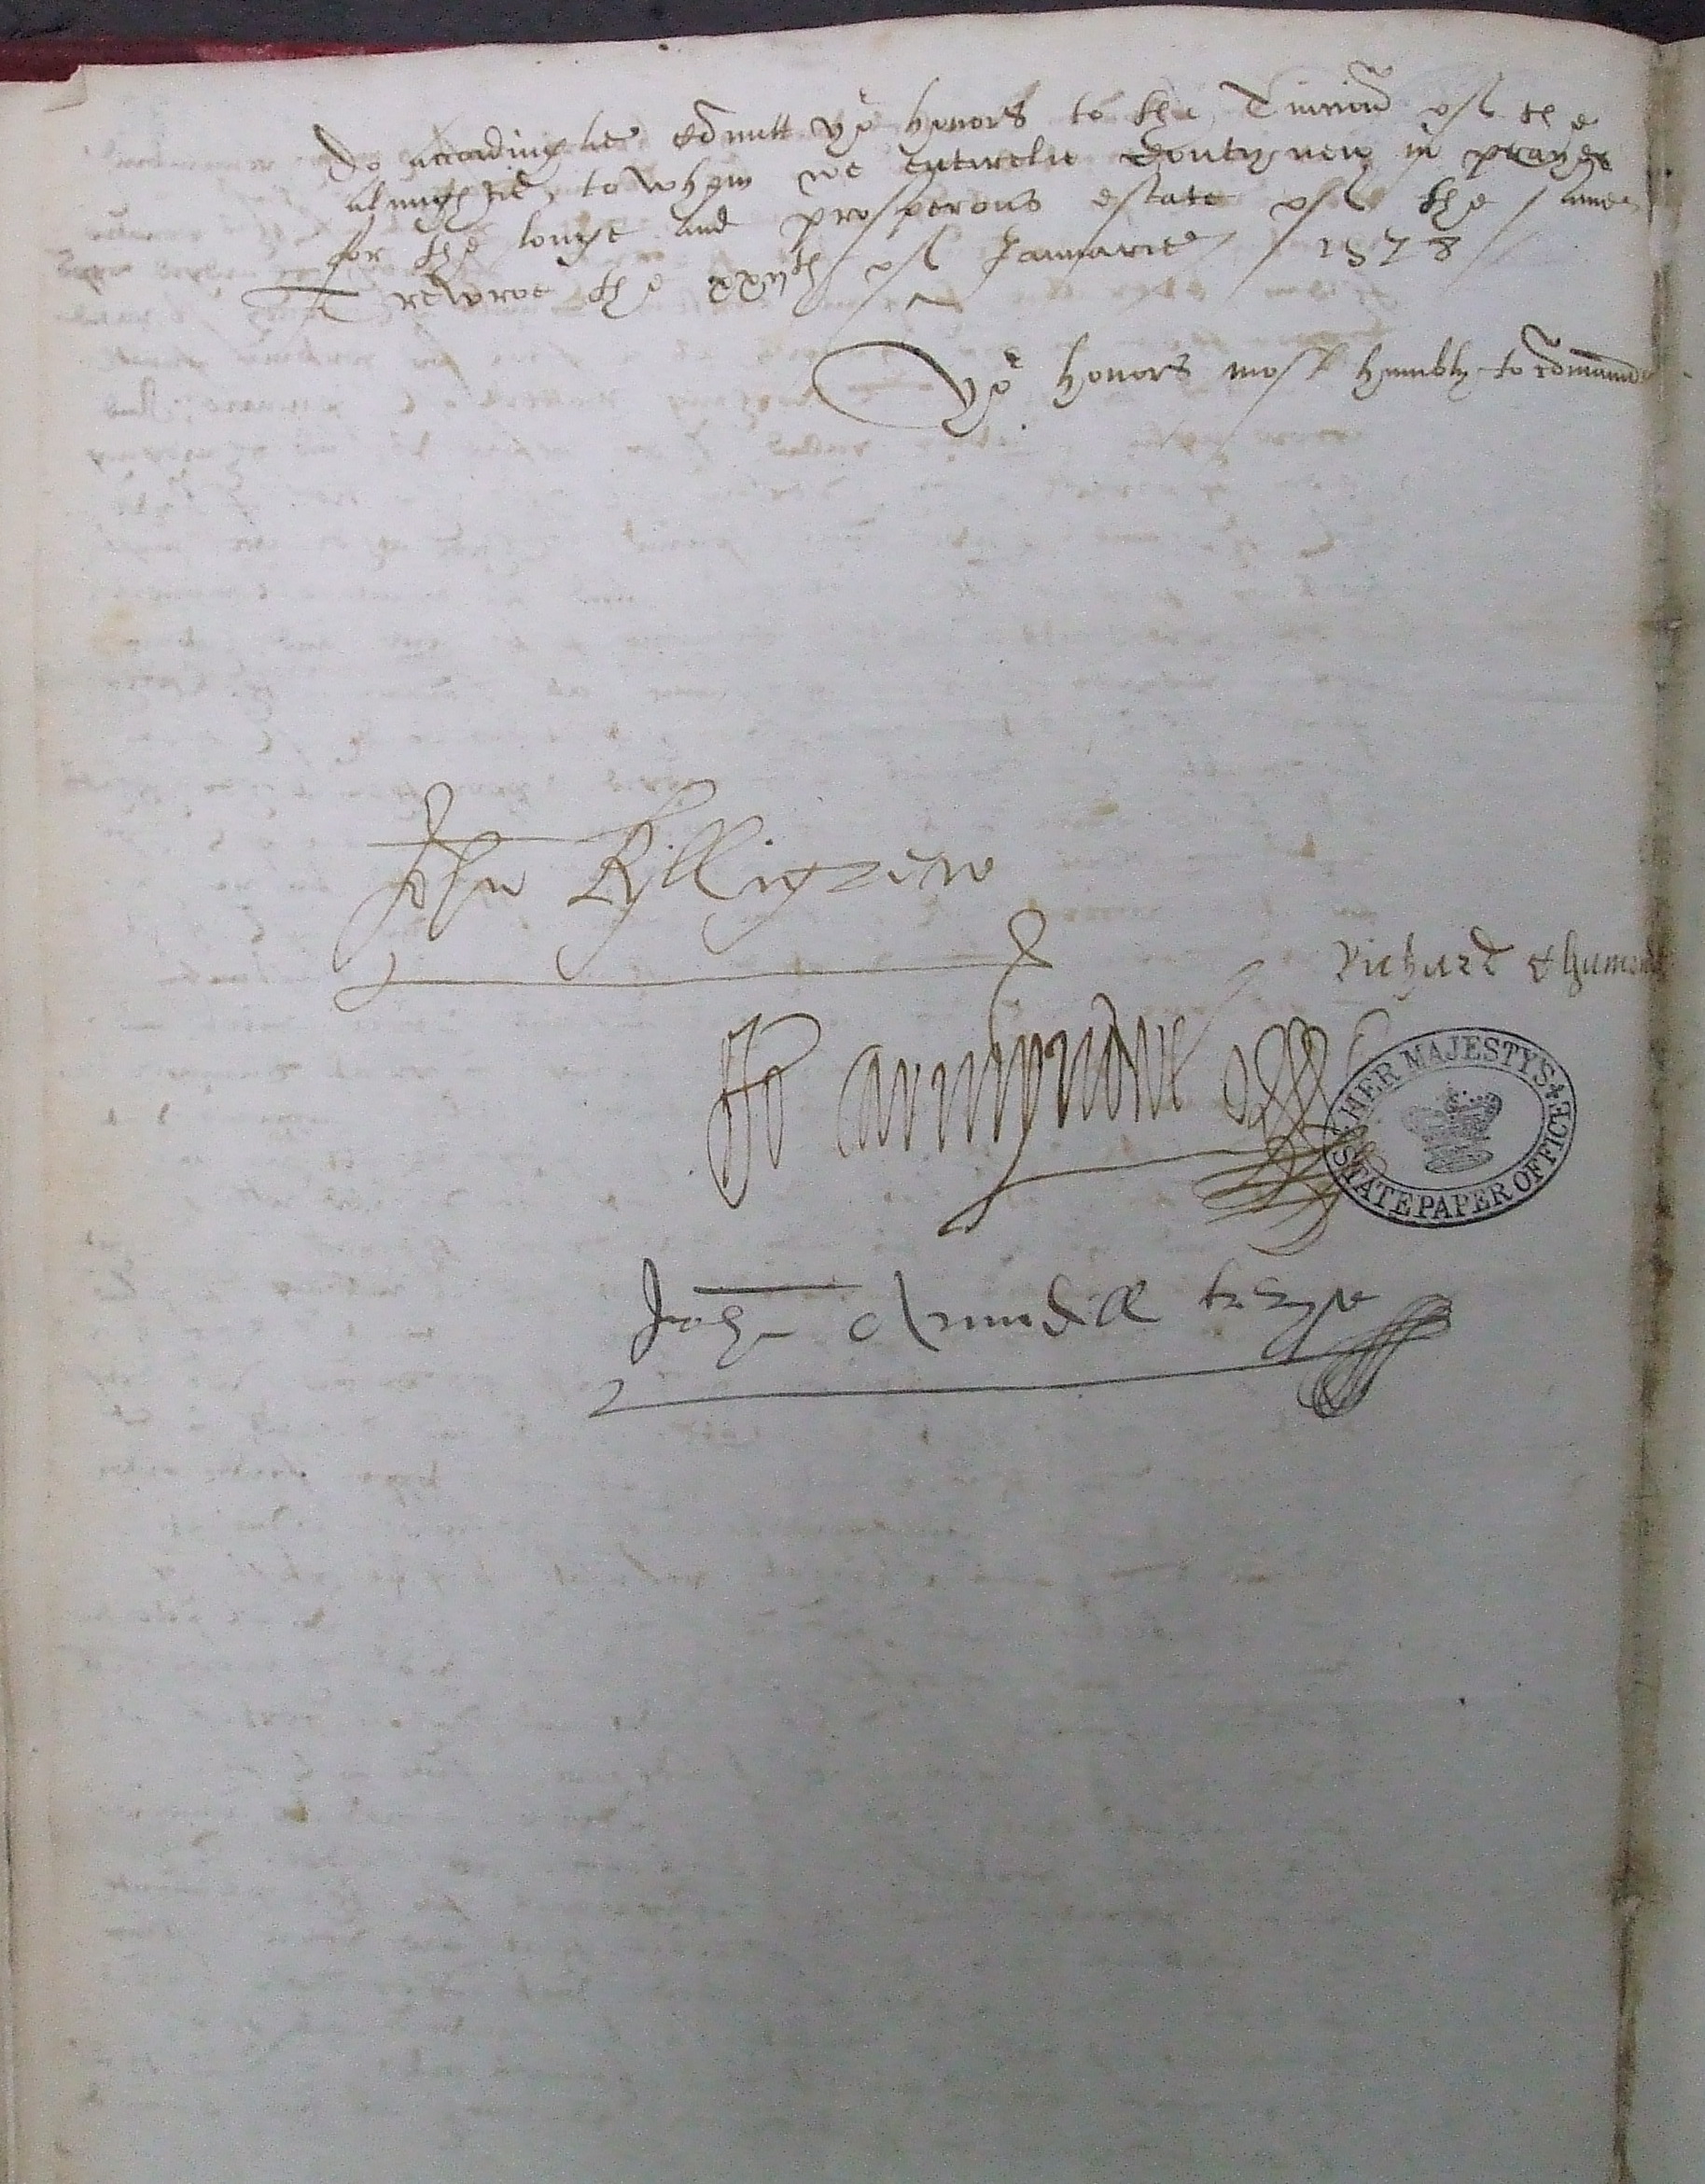 do accordinglie comitt yor honors to the Tuicion off the
almightie, to whom we entirelie contynew in prayer
for the longe and prosperous estate off the same,
Trewroe the xxijth off Januarie / 1578 /
Yor honors most humbly to comaund
John Kylligrew
Richard Chamond
John Arundell treryse
HER MAJESTY'S STATE PAPER OFFICE